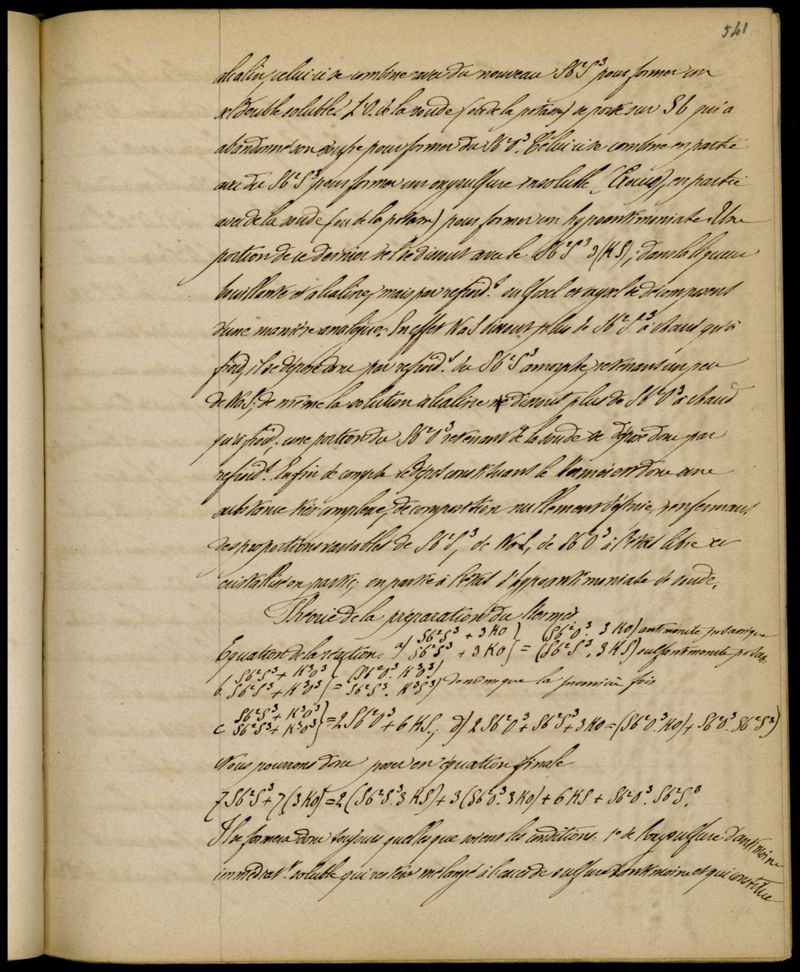 541
alcalin, celui ci se combine avec du nouveau Sb²S³ pour former un
sel double soluble. L'O. de la soude (ou de la potasse) se porte sur Sb qui a
abandonné son soufre pour former du Sb²O³. Celui ci se combine en partie
avec du Sb²S³ pour former un oxysulfure insoluble (Crocus), en partie
avec de la soude (ou de la potasse) pour former un hypoantimoniate. Une
portion de ce dernier sel se dissout avec le Sb²S³ 3(KS), dans la liqueur
bouillante et alcaline, mais par refroidt. en se décomposent
d'une manière analogue. En effet NaS dissout plus de Sb²S³ à chaud qu'à
froid, il se dépose donc par refroidt. du Sb²S³ amorphe, retenant un peu
de NaS; de même la solution alcaline dissout plus de Sb²O³ à chaud
qu'à froid, une portion du Sb²O³ retenant de la soude se dépose donc par
refroidt. En fin de compte le dépot constituant le Kermès est donc une
substance très complexe, de composition nullement définie, renfermant
des proportions variables de Sb²S³, de NaS, de Sb²O³ à l'état libre et
cristallisé en partie, en partie à l'état d'hypoantimoniate de soude.
Théorie de la préparation du Kermès
Equation de la réaction. a) Sb²S³ + 3KO } (Sb²O³. 3KO) antimonite potassique
Sb²S³ + 3KO } = (Sb²S³, 3KS) sulfantimonite potass.
b. Sb²S³ + K³O³ { (Sb²O³. K³O³)
Sb²S³ + K³O³ } = Sb²S³. K³S³) de même que la première fois
c Sb²S³ + K³O³ }
Sb²S³ + K³O³ } = 2Sb²O³ + 6KS., d) 2Sb²O³ + Sb²S³ + 3KO = (Sb²O³. 3KO) + Sb²O³. Sb²S³)
Nous pourrons donc poser en équation finale
7Sb²S³ + 7(3KO) = 2(Sb²S³. 3KS) + 3(Sb²O³. 3KO) + 6KS + Sb²O³. Sb²S³
Il se formera donc toujours quelles que soient les conditions. 1º de l'oxysulfure d'antimoine
immédiatt. soluble qui restera mélangé à l'excès de sulfure d'antimoine et qui constitue